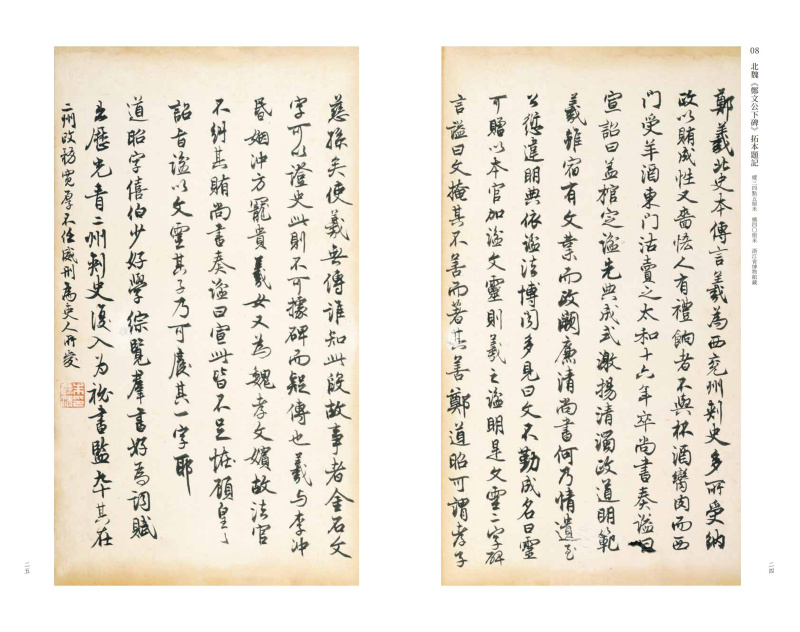 08
北魏《鄭文公下碑》拓本題記
縱二四點五厘米　橫四〇厘米　浙江省博物館藏
鄭羲北史本傳言羲為西兗州刺史多所受納
政以賄成性又嗇恡人有禮餉者不與杯酒臠肉而西
門受羊酒東門沽賣之太和十六年卒尚書奏謚曰
宣詔曰蓋棺定謚先典成式激揚清濁政道明範
羲雖宿有文業而政闕廉清尚書何乃情遺至
公愆違明典依謚法博聞多見曰文不勤成名曰靈
可贈以本官加謚文靈則羲之謚明是文靈二字碑
言謚曰文掩其不善而著其善鄭道昭可謂孝子
慈孫矣使羲無傳誰知此段故事者金石文
字可以證史此則不可據碑而疑傳也羲与李沖
昏姻沖方寵貴羲女又為魏孝文嬪故法官
不糾其賄尚書奏謚曰宣此皆不足恠顧皇皇
詔旨謚以文靈其子乃可廋其一字耶
道昭字僖伯少好學綜覽羣書好為詞賦
出歷光青二州刺史復入为祕書監卒其在
二州政務寬厚不任威刑為吏人所愛
二五
二四